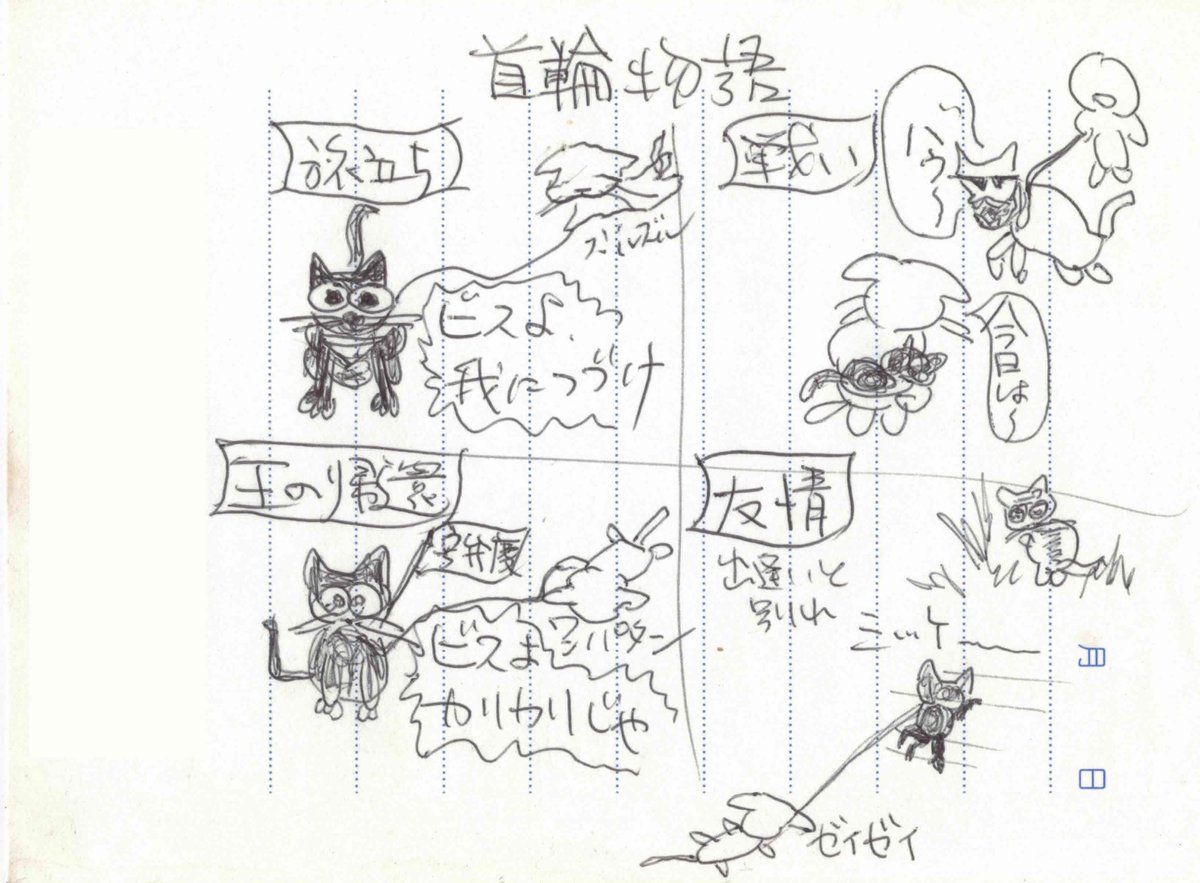 首輪物語
旅立ち
ズルズル
ビスよ、
我につづけ
戦い
ハゥ〜
今日は〜
王の帰還
ワンパターン
ビスよ
カリカリじゃ
友情
出逢いと
別れ
ミッケー
ゼイゼイ
月
日